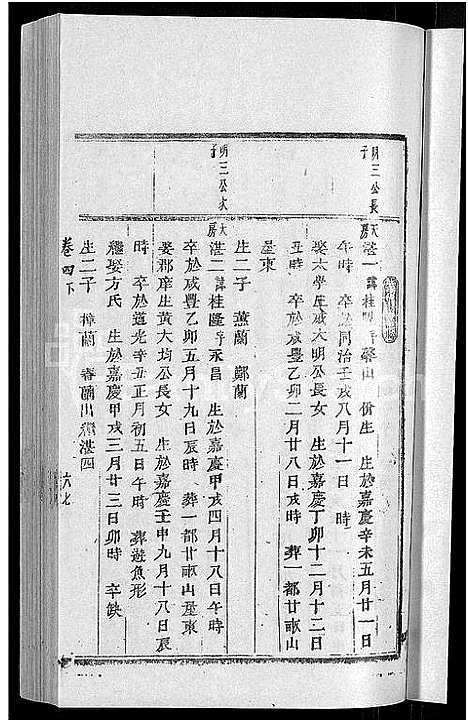 明三公長子
大房湛一 諱桂 字藥山 份生 生於嘉慶辛未五月廿一日
午時 卒於同治壬戌八月十一日 時
娶太學生戚大明公長女 生於嘉慶丁卯十二月十二日
丑時 卒於咸豐乙卯二月廿八日戌時 葬一都廿畝山
屋東
生二子 蕙蘭 鄭蘭
明三公次子
大房湛一 諱桂隆 字永昌 生於嘉慶甲戌四月十八日午時
卒於咸豐乙卯五月十九日辰時 葬一都廿畝山屋東
娶郡庠生黃大均公長女 生於嘉慶壬申九月十八日辰
時 卒於道光辛丑正月初五日午時 葬遊魚形
繼娶方氏 生於嘉慶甲戌三月廿三日卯時 卒缺
生二子 樟蘭 春蘭出繼湛四
卷四下
六七